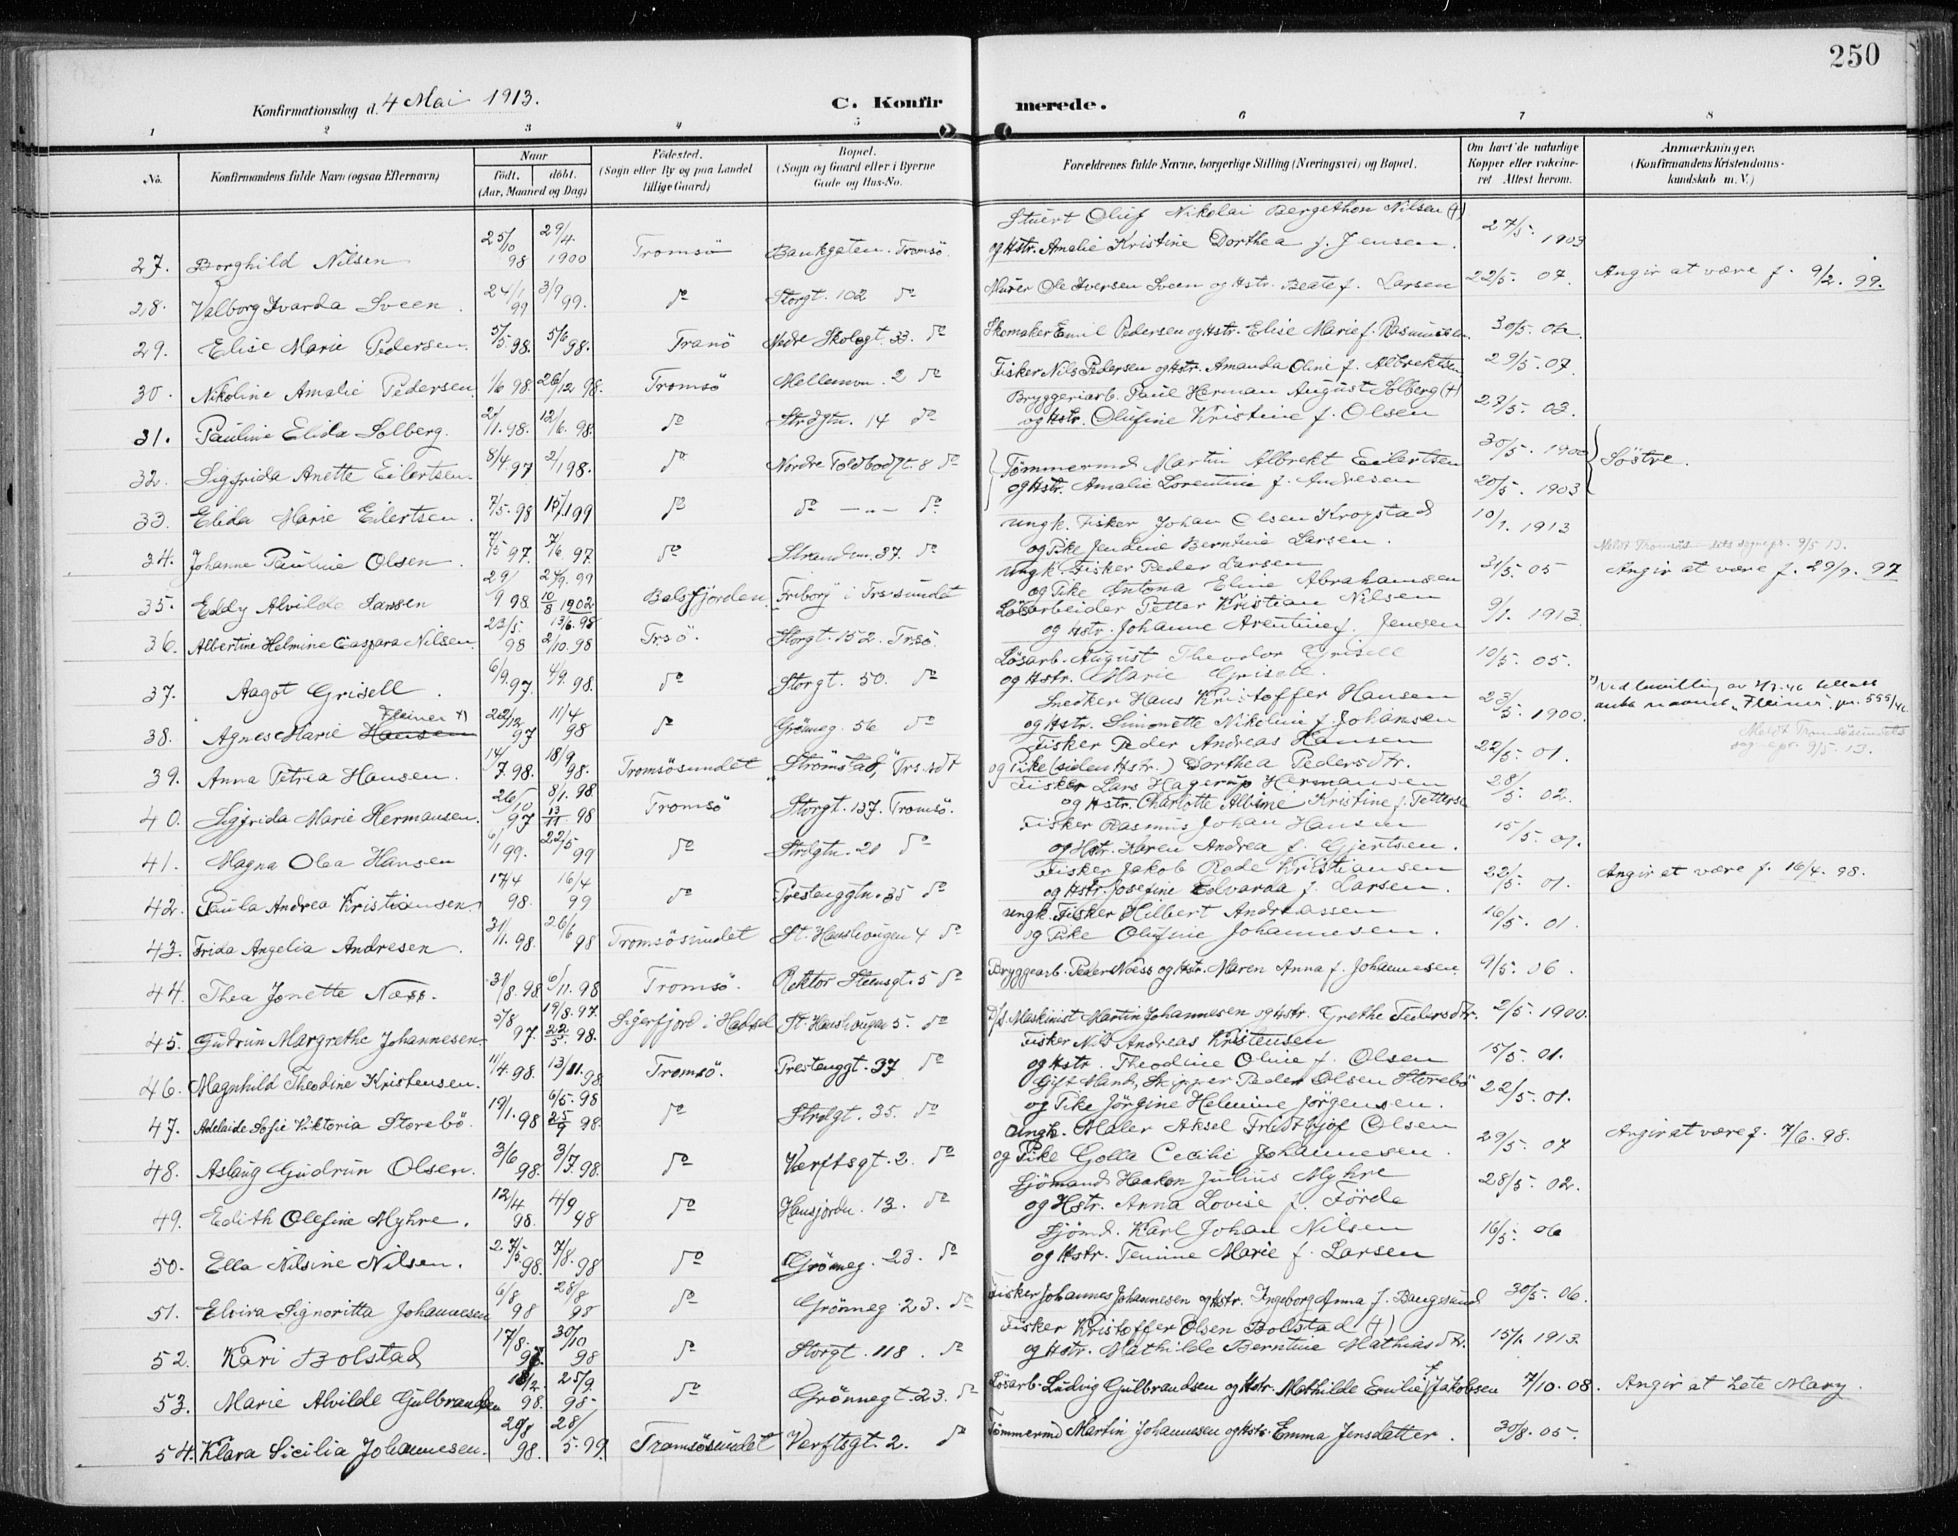 250
Konfirmationsdag d. 4 Mai 1913.
C. Konfirmerede.
1 2 3 4 5 6 7 8
No. Konfirmandens fulde Navn (ogsaa Efternavn) Naar født. døbt. (Aar, Maaned og Dag) Fødested. (Sogn eller By og paa Landet tillige Gaard) Bopæl. (Sogn og Gaard eller i Byerne Gade og Hus-No. Forældrenes fulde Navne, borgerlige Stilling (Næringsvei) og Bopæl. Om havt de naturlige Kopper eller vakcineret Attest herom. Anmærkninger. (Konfirmandens Kristendomskundskab m. V.)
27. Borghild Nilsen 25/10 98 29/4 1900 Tromsö Bankgaten. Tromsö. Stuert Oluf Nikolai Bergethon Nilsen (+)
og Hstr. Amalie Kristine Dorthea f. Jensen. 27/5. 1903
28. Valborg Ivarda Sveen. 24/1 99 3/9 99. do Storgt. 102 do Murer Ole Iversen Sveen og Hstr. Beate f. Larsen 22/5. 07. Angir at være f. 9/2. 99.
29. Elise Marie Pedersen. 5/5 98. 5/6 98. Tranö Nedre Skolegt. 33. do Skomaker Emil Pedersen og Hstr. Elise Marie f. Rasmussen. 30/5. 06
30. Nikoline Amalie Pedersen 1/6 98. 26/12 98. Tromsö Mellemvn. 2 do Fisker Nils Pedersen og Hstr. Amanda Oline f. Albrektsen 29/5. 07.
31. Pauline Elida Solberg. 2/1. 98. 12/6. 98. do Strdgtn. 14 do Bryggeriarb. Paul Herman August Solberg (+)
og Hstr. Olufine Kristine f. Olsen 27/5. 03.
32. Sigfrida Anette Eilertsen. 8/4 97 2/1 98. do Nordre Toldbodgt. 8 do Tømmermd Martin Albrekt Eilertsen 30/5. 1900 Søstre.
33. Elida Marie Eilertsen. 7/5. 98 15/1 99 do do — „ — do og Hstr. Amalie Lorentine f. Andresen 20/5. 1903
34. Johanne Pauline Olsen. 7/5 97. 7/6 97. do Strandvn. 37. do Ungk. Fisker Johan Olsen Krogstad
og Pike Jendine Berntine Larsen. 10/1. 1913
35. Eddy Alvilde Larsen 29/9 98. 24/9. 99 10/8 1902 Balsfjorden. Friborg i Trs-sundet Ungk. Fisker Peder Larsen
og Pike Antona Eline Abrahamsen 31/5. 05 Meldt Tromsös– dets sognepr. 9/5 13. Angir at være f. 29/9. 97
36. Albertine Helmine Caspara Nilsen. 23/5. 98 13/6. 98 2/10. 98 Trsö. Storgt. 152. Trsö. Lösarbeider Petter Kristian Nilsen
og Hstr. Johanne Arentine f. Jensen 9/1. 1913.
37. Aagot Grisell. 6/9. 97. 4/9. 98. do Storgt. 50. do Lösarb. August Theodor Grisell
og Hstr. Marie Grisell. 10/5. 05.
38. Agnes Marie Hansen Fleiner +) 22/12 97 11/4 98 do Grönneg. 56 do Snedker Hans Kristoffer Hansen
og Hstr. Simonette Nikoline f. Johansen 23/5. 1900. +) Ved bevilling av 2/7. 46 tillatt anta navnet „Fleiner“, jnr. 555/46
39. Anna Petrea Hansen. 14/7. 98. 18/9 98. Tromsösundet „Strömstad“, Trs.sdt Fisker Peder Andreas Hansen
og Pike (siden Hstr.) Dorthea Pedersdtr. 22/5. 01. Meldt Tromsösundets sognepr. 9/5. 13.
40. Sigfrida Marie Hermansen. 26/10 97 8/1. 98 13/11. 98 Tromsö Storgt. 137. Tromsö. Fisker Lars Hagerup Hermansen
og Hstr. Charlotte Albine Kristine f. Petterse 28/5. 02.
41. Magna Olea Hansen 6/1 99. 22/5 99 do Strdgtn. 20 do Fisker Rasmus Johan Hansen
og Hstr. Karen Andrea f. Gjertsen. 15/5. 01.
42. Paula Andrea Kristiansen 17/4 98. 16/4 99 do Prestenggtn. 35 do Fisker Jakob Rode Kristiansen
og Hstr. Josefine Edvarda f. Larsen. 22/5. 01. Angir at være f. 16/4. 98.
43. Frida Angelia Andresen. 31/1. 98. 26/6 98 Tromsösundet St. Hanshaugen 4 do Ungk. Fisker Hilbert Andreassen
og Pike Olufine Johannesen. 16/5. 01.
44. Thea Jonette Næss. 31/8. 98. 6/11. 98 Tromsö. Rektor Steensgt. 5 do Bryggearb. Peder Næss og Hstr. Maren Anna f. Johannesen. 9/5. 06.
45. Gudrun Margrethe Johannesen 5/8 97. 19/8. 97. 22/5. 98. Sigerfjord i Hadsel St. Hanshaugen 5. do D/s Maskinist Martin Johannesen og Hstr. Grethe Pedersdtr. 2/5. 1900.
46. Magnhild Theodine Kristensen. 11/4. 98. 13/11. 98. Tromsö. Prestenggt. 37 do Fisker Nils Andreas Kristensen
og Hstr. Theodine Oline f. Olsen 15/5. 01.
47. Adelaide Sofie Viktoria Storebö. 19/1. 98 6/5. 98 25/9 98. do Strdgt. 35. do Gift Mand, Skipper Peder Olsen Storebö
og Pike Jörgine Helmine Jörgensen. 22/5. 01.
48. Aslaug Gudrun Olsen. 3/6 98. 3/7. 98. do Værftsgt. 2. do Ungk. Maler Aksel Fridthjof Olsen
og Pike Golla Cecilie Johannesen. 29/5. 07 Angir at være f. 7/6. 98.
49. Edith Olefine Myhre. 12/4 98. 4/9 98 do Hansjordn. 13. do Sjömand Haakon Julius Myhre
og Hstr. Anna Lovise f. Förde 28/5. 02.
50. Ella Nilsine Nilsen. 27/5. 98. 7/8. 98 do Grönneg. 23. do Sjömd. Karl Johan Nilsen
og Hstr. Tenine Marie f. Larsen 16/5. 06
51. Elvira Signoritta Johannesen 6/8 98 28/8 98 do Grönneg. 23. do Fisker Johannes Johannesen og Hstr. Ingeborg Anna f. Baugsund 30/5. 06.
52. Kari Bolstad 17/8. 97. 30/10 98 do Storgt. 118. do Fisker Kristoffer Olsen Bolstad (+)
og Hstr. Mathilde Berntine Mathiasdtr. 15/1 1913
53. Marie Alvilde Gulbrandsen 18/2. 98. 25/9. 98. do Grönnegt. 23. do Lösarb. Ludvig Gulbrandsen og Hstr. Mathilde Emilie f. Jakobsen 7/10. 08. Angir at hete Mary.
54. Klara Sicilia Johannesen. 20/8 98. 28/5. 99. Tromsösundet Verftsgt. 2. do Tömmermd Martin Johannesen og Hstr. Emma Jensdatter. 30/8. 05.